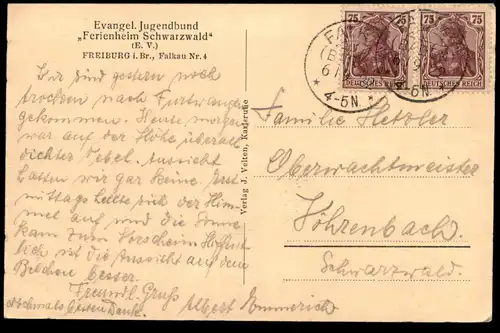 Evangel. Jugendbund
„Ferienheim Schwarzwald“
(E. V.)
FREIBURG i. Br., Falkau Nr. 4
Wir sind gestern noch
trocken nach Furtwangen
gekommen. Heute morgen
war auf der Höhe, überall
dichter Nebel. Aussicht
hatten wir gar keine. Erst
mittags heute sich der Him-
mel auf und die Sonne
kam zum Vorschein. Hoffent-
lich ist die Aussicht auf dem
Belchen besser.
Freundl. Gruß
nochmals besten Dank. Albert Emmerich
Verlag J. Velten, Karlsruhe
75 75 75 75
DEUTSCHES REICH DEUTSCHES REICH
4-5N. 4-5N.
Familie
Oberwachtmeister
Vöhrenbach
Schwarzwald.